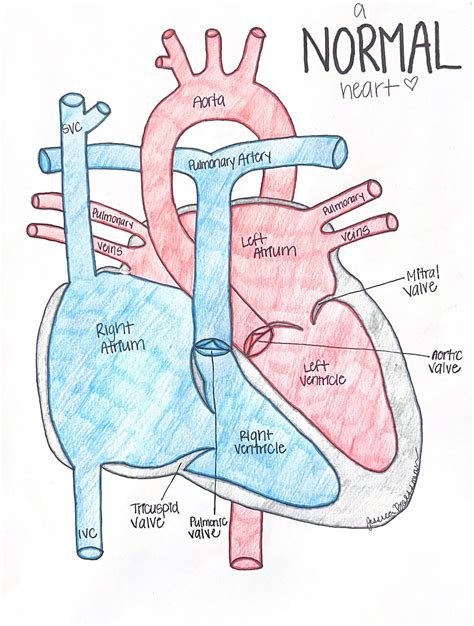 a
NORMAL
heart
Aorta
SVC
Pulmonary Artery
Pulmonary
veins
Left
Atrium
Pulmonary
veins
Mitral
valve
Right
Atrium
Aortic
valve
Left
ventricle
Right
ventricle
Tricuspid
valve
Pulmonic
valve
IVC
Jessica